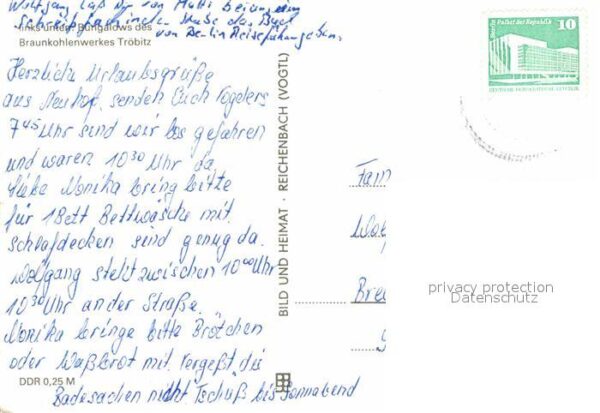 Wolfgang laß Dir von Mutti bei
Schreibtisch das Buch
von Berlin Reiseführer geben.
links unten: Bungalows des
Braunkohlenwerkes Tröbitz
Herzliche Urlaubsgrüße
aus Neuhof, senden Euch Voglers
7 45 Uhr sind wir los gefahren
und waren 10 30 Uhr da.
Liebe Monika bring bitte
für 1 Bett Bettwäsche mit.
Schlafdecken sind genug da.
Wolfgang steht zwischen 10 00 Uhr
10 30 Uhr an der Straße.
Monika bringe bitte Brötchen
oder Weißbrot mit. Vergeßt die
Badesachen nicht. Tschüß bis Sonnabend
DDR 0,25 M
BILD UND HEIMAT · REICHENBACH (VOGTL)
Berlin Palast der Republik
10
DEUTSCHE DEMOKRATISCHE REPUBLIK
Fam
Wolf
Bre
privacy protection
Datenschutz